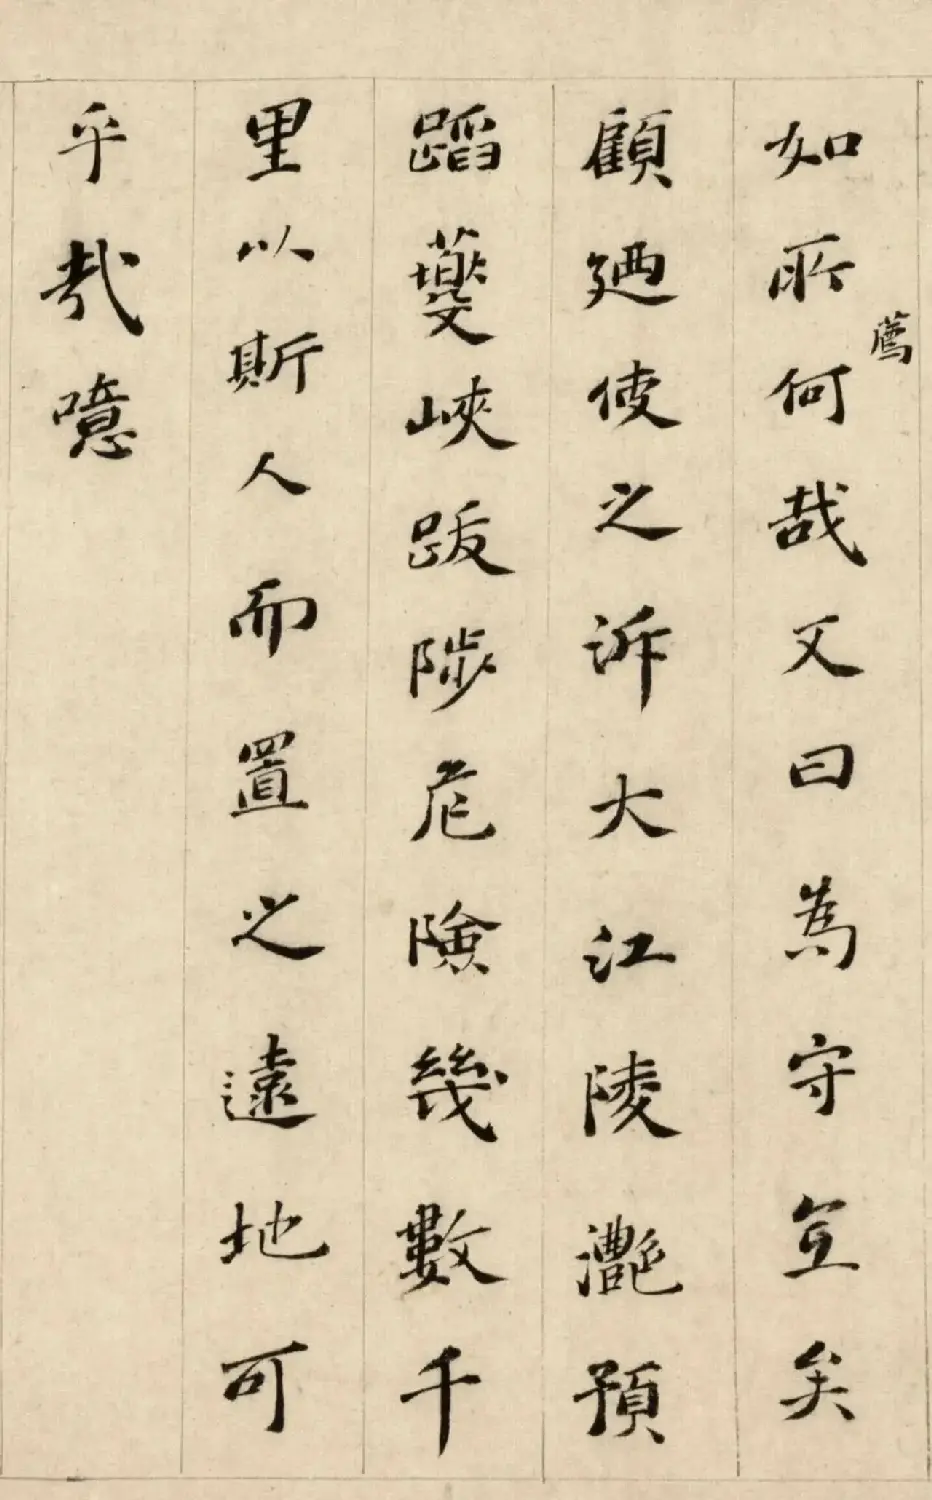 如所薦何哉又曰為守宜矣
顧廼使之訴大江陵灩預
蹈夔峽跋陟危險幾數千
里以斯人而置之遠地可
乎哉噫